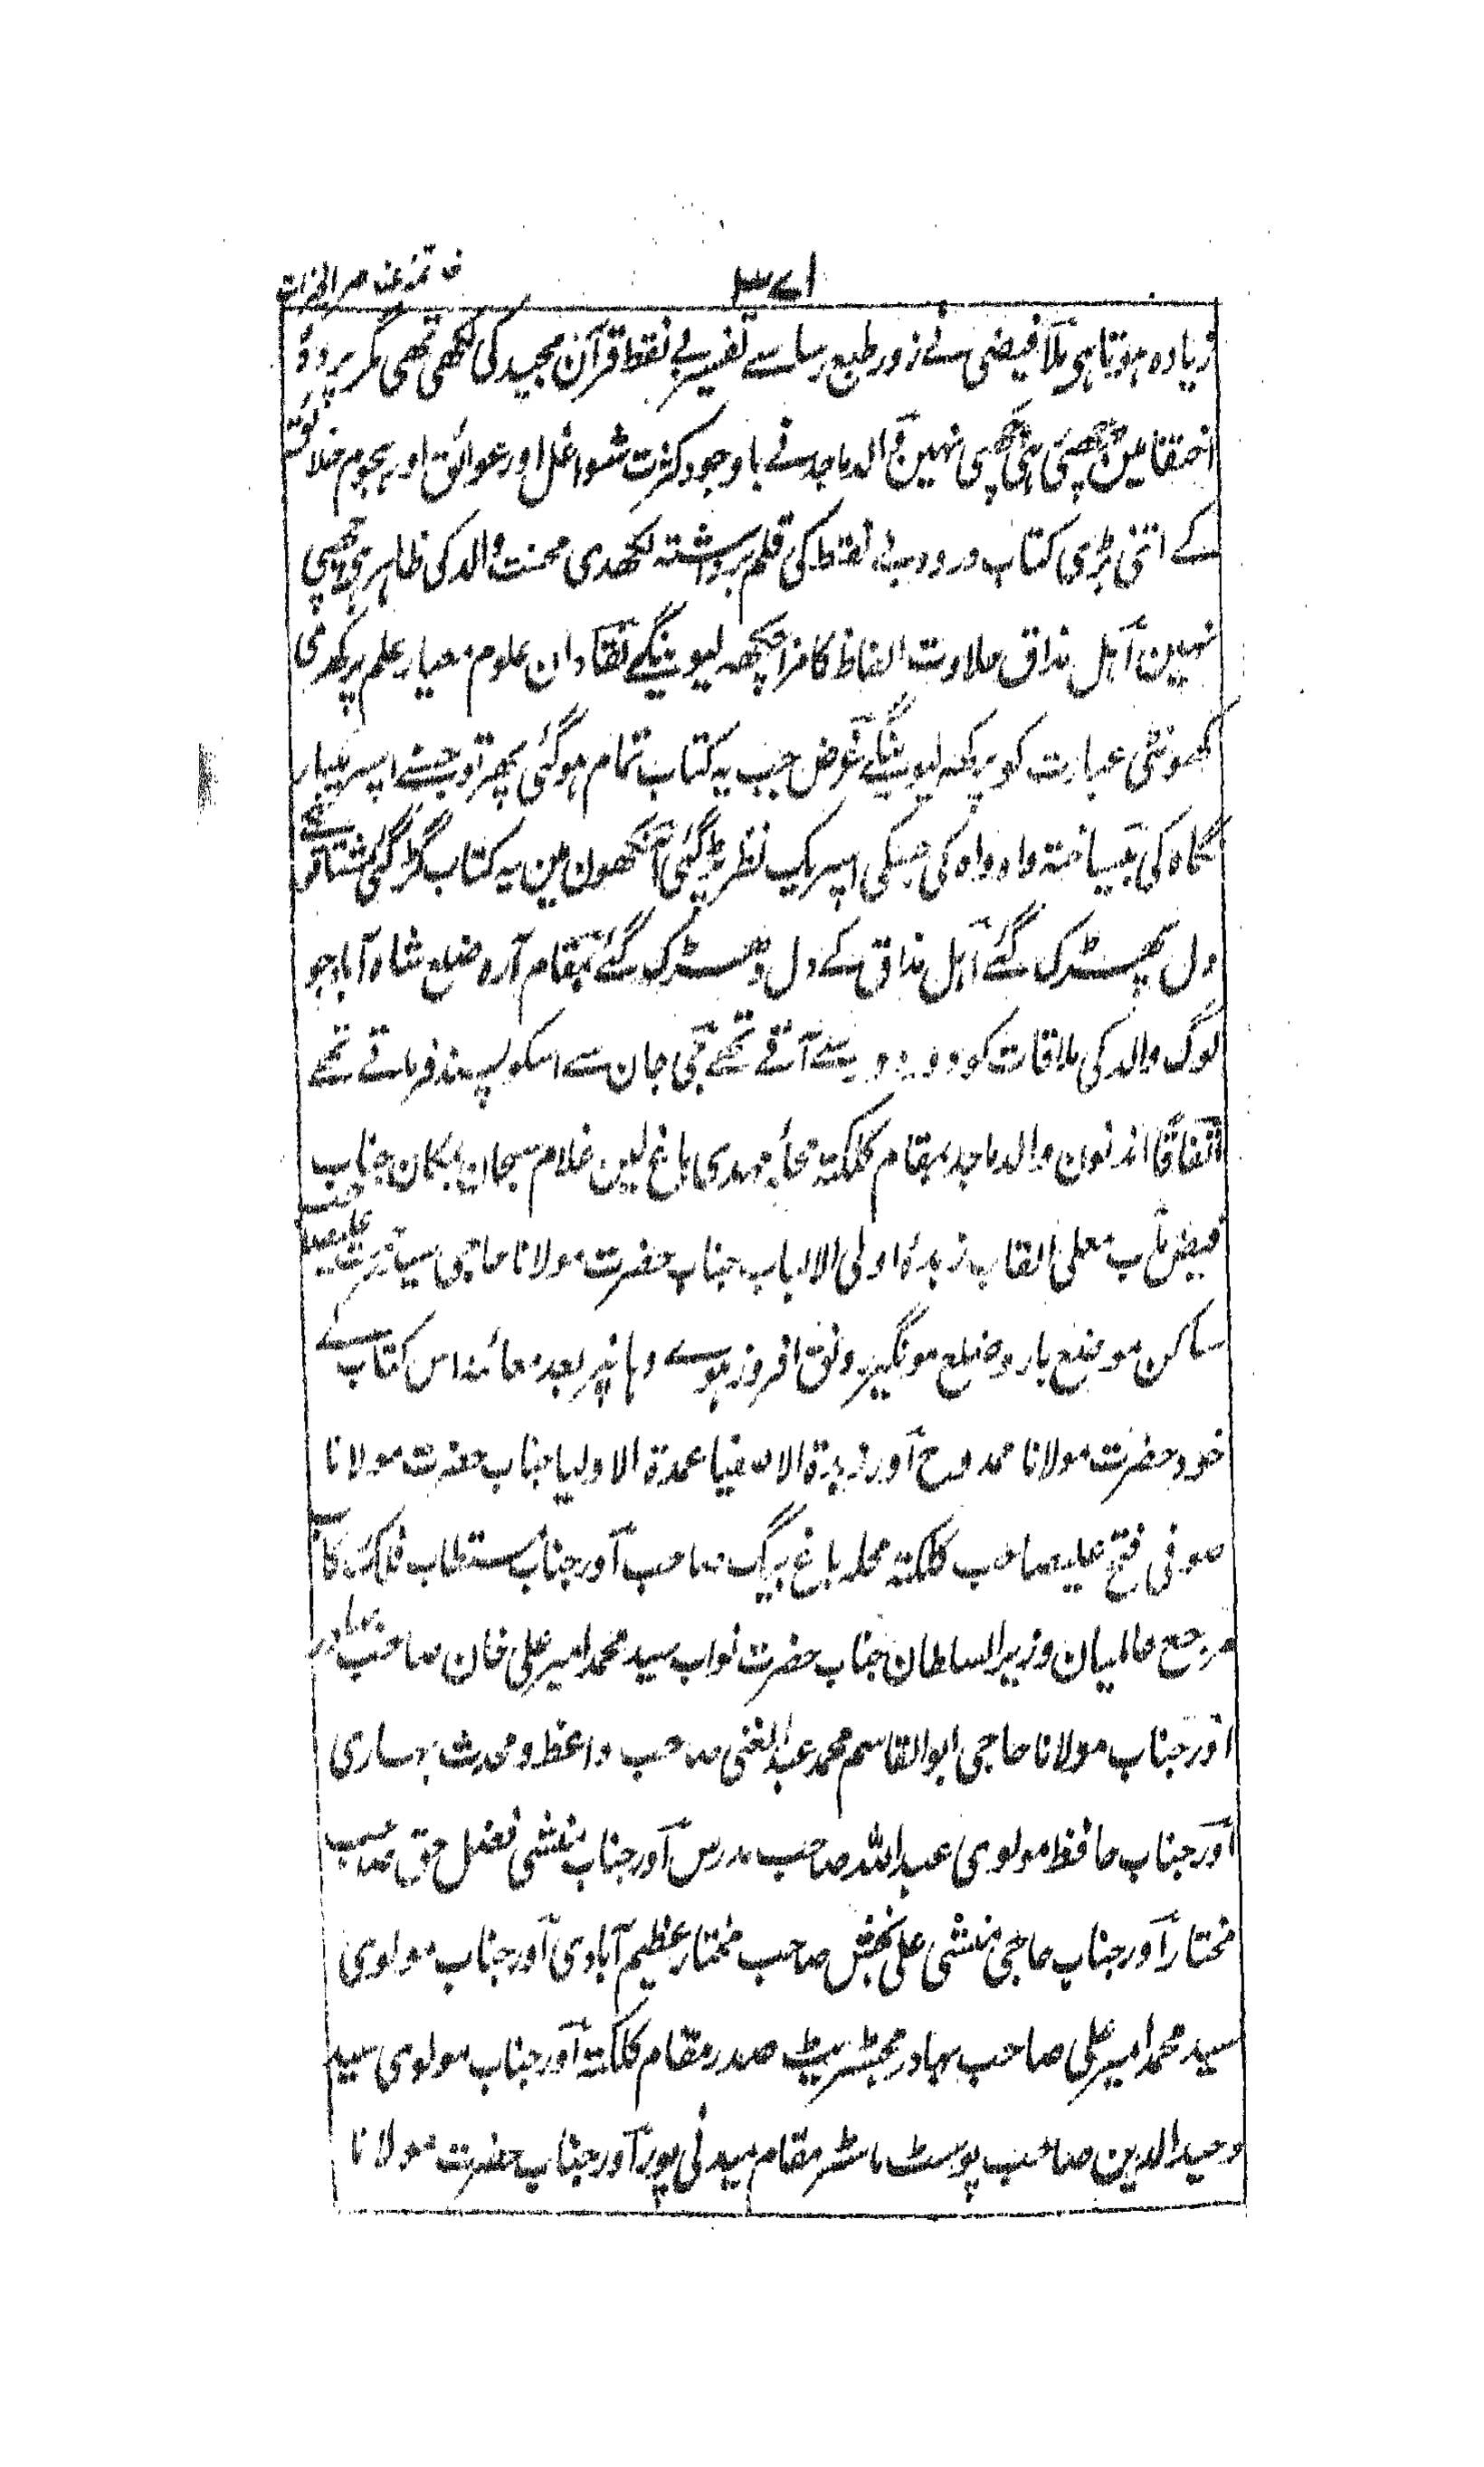 ۳۷۱
زیادہ ہوتا ہی ملا فیضی نے زور طبع رسا سے تفسیر بے نقط قرآن مجید کی لکھی تھی مگر پردۂ
اختفا مین چھپی ہی چھپی نہین والد ماجد نے باوجود کثرت شواغل اور عوائق اور ہجوم خلائق
کے اتنی بڑی کتاب درود بے نقط کی قلم برداشتہ لکھدی محنت والد کی ظاہر ہی چھپی
نہین اہل مذاق حلاوت الفاظ کا مزا چکھہ لیوینگے نقادان علوم معیار علم پر کھری
کھوٹی عبارت کو پرکھہ لیوینگے غرض جب یہ کتاب تمام ہوگئی پھر تو جسنے اسپر
نگاہ کی بیساختہ واہ واہ کی جسکی اسپر یک نظر پڑ گئی آنکھون مین یہ کتاب گڑ گئی
دل پھڑک گئے اہل مذاق کے دل دھڑک گئے بمقام آرہ ضلع شاہ آباد جو
لوگ والد کی ملاقات کو دور دور سے آتے تھے جی جان سے اسکو پسند فرماتے تھے
اتفاقاً اندنون والد ماجد بمقام کلکتہ محلہ مہدی باغ لین غلام سبحان بمکان جناب
فیض مآب معلی القاب زبدۂ اولی الالباب جناب حضرت مولانا حاجی سید
ساکن موضع بارو ضلع مونگیر رونق افروز ہوے وہانپر بعد معائنہ اس کتاب کے
خود حضرت مولانا ممدوح اور زبدۃ الاصفیا عمدۃ الاولیا جناب حضرت مولانا
صوفی فتح علیصاحب کلکتہ محلہ باغ بیگ صاحب اور جناب مستطاب
مرجع عالمیان وزیر السلطان جناب حضرت نواب سید محمد امیر علی خان صاحب بہادر
اور جناب مولانا حاجی ابوالقاسم محمد عبدالغنی صاحب واعظ و محدث بہساری
اور جناب حافظ مولوی عبداللہ صاحب مدرس اور جناب منشی فضل حق صاحب
مختار اور جناب حاجی منشی علی بخش صاحب مختار عظیم آبادی اور جناب مولوی
سید محمد امیر علی صاحب بہادر مجسٹریٹ صدر مقام کلکتہ اور جناب مولوی سید
وحید الدین صاحب پوسٹ ماسٹر مقام میدنی پور اور جناب حضرت مولانا